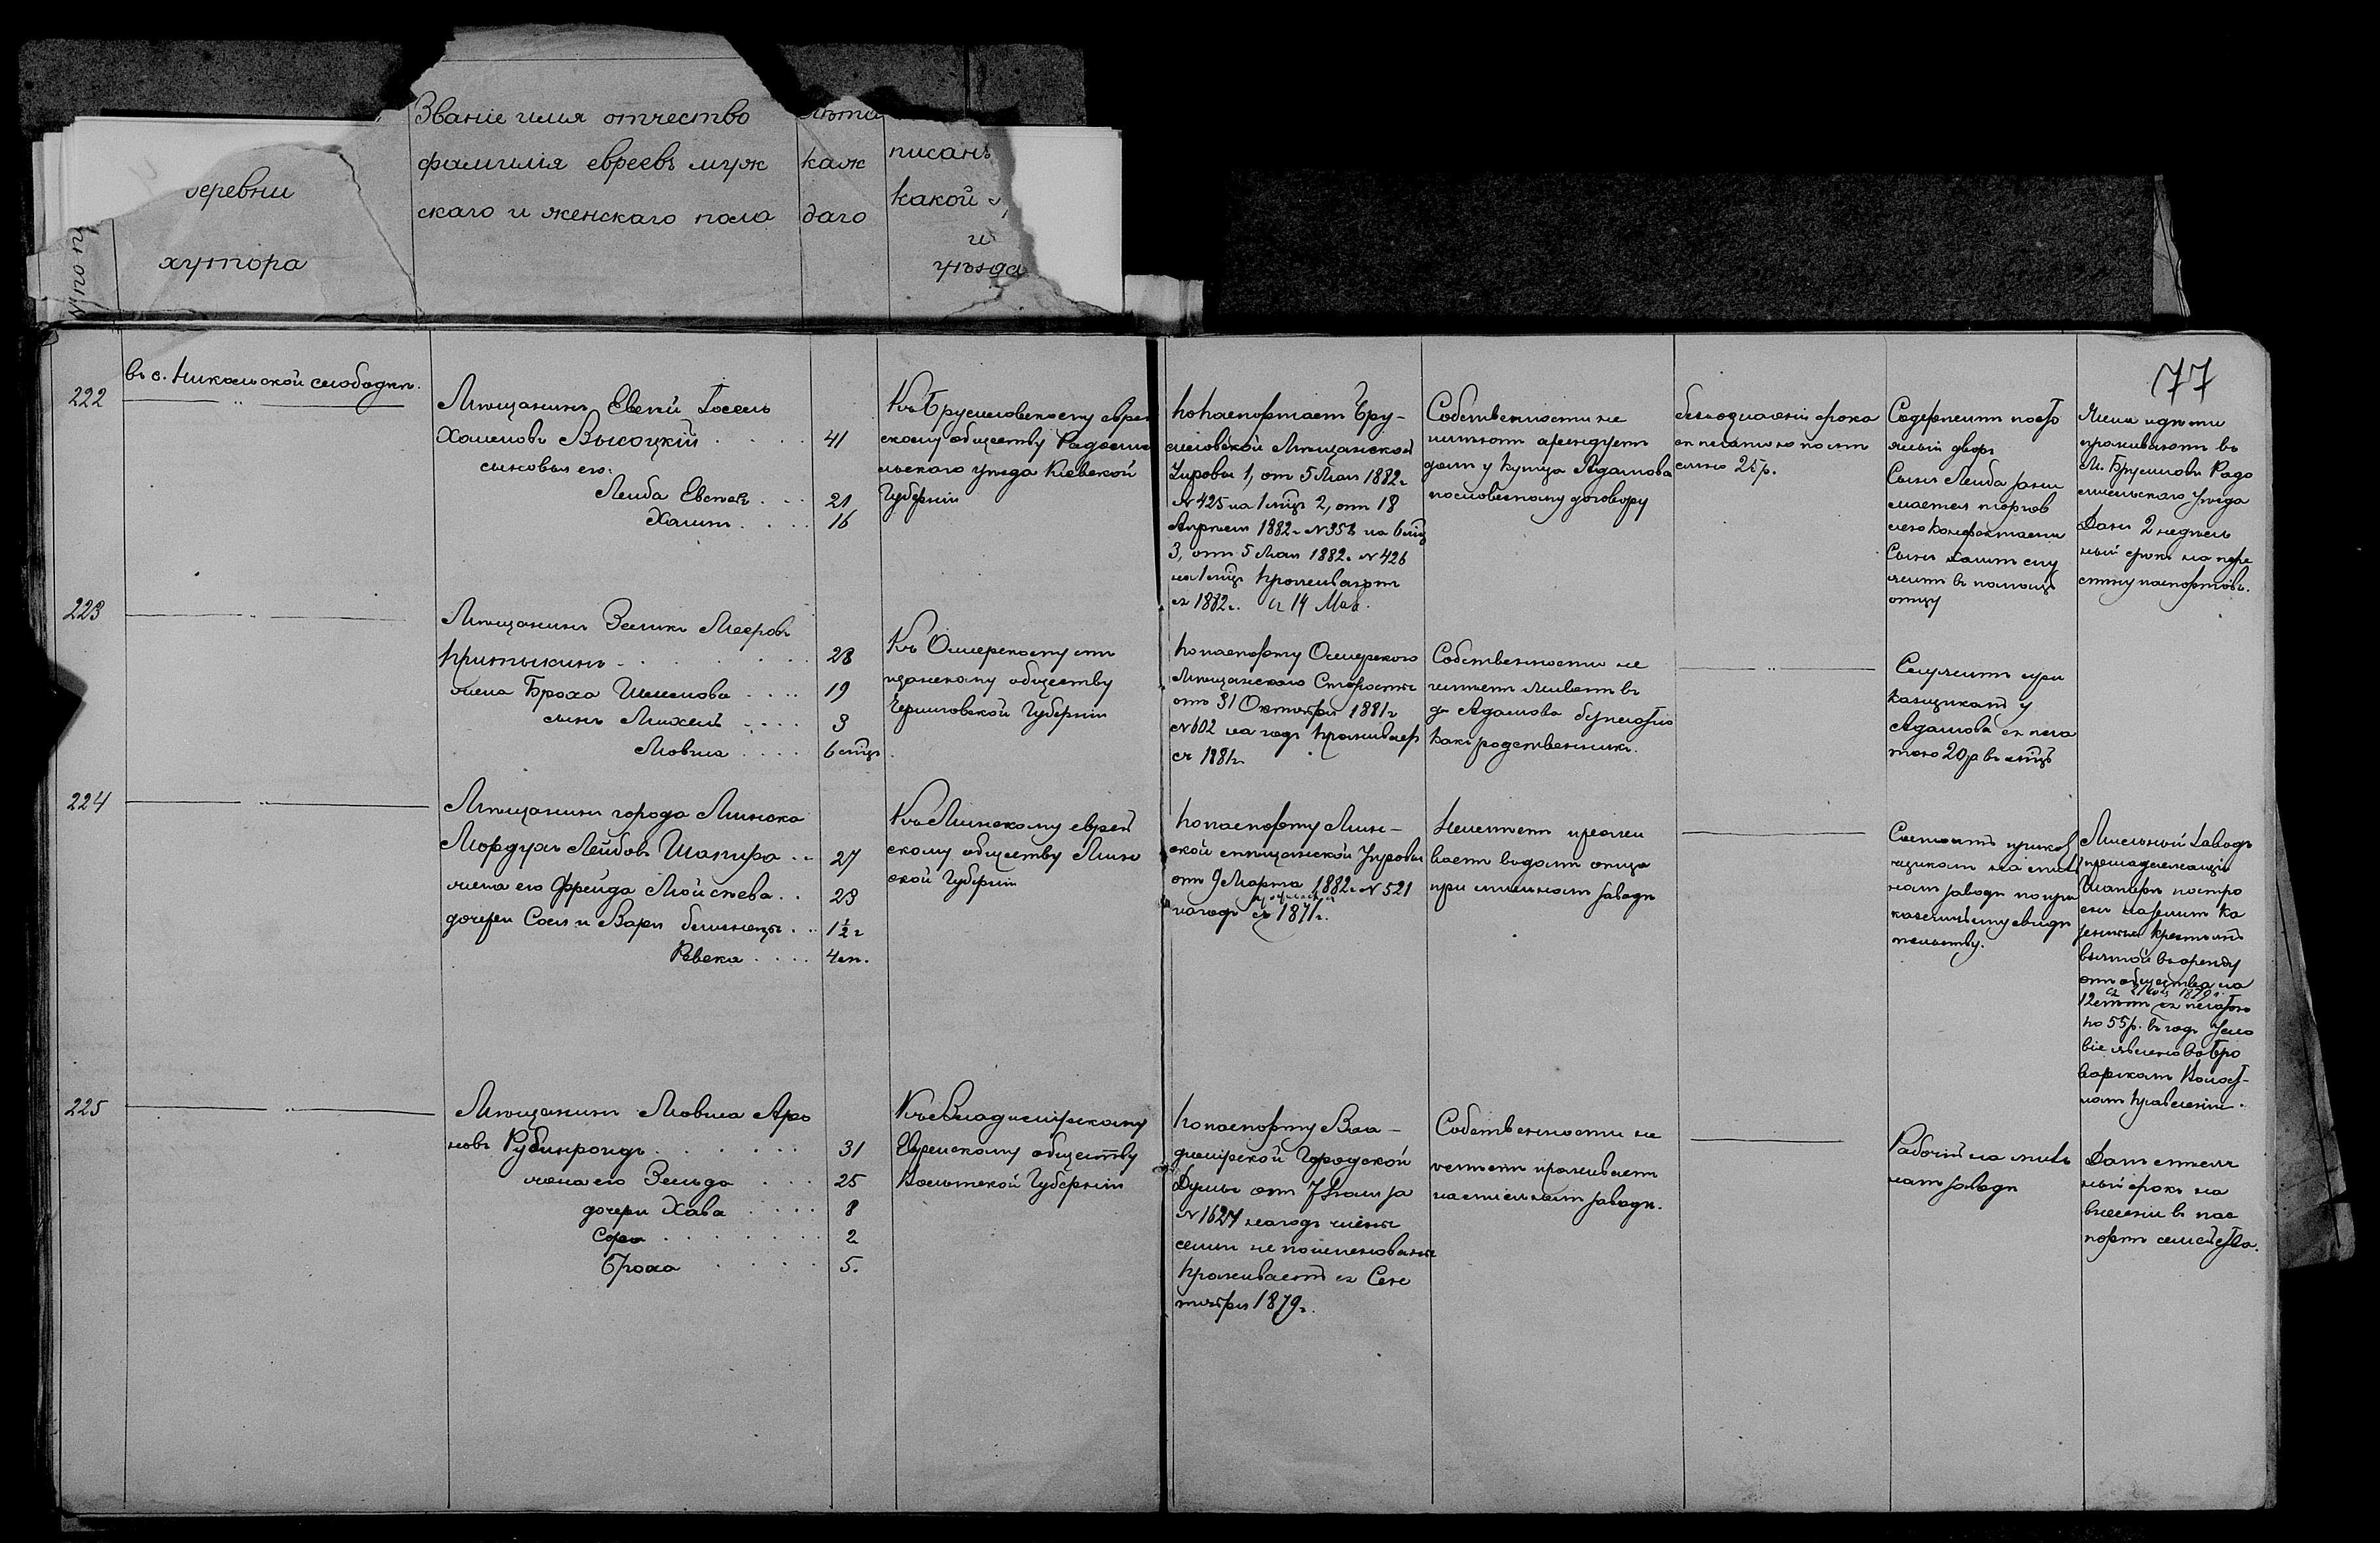 Званіе имя отчество
фамилія евреевъ муж
скаго и женскаго пола
лѣта
каж
даго
писанъ
какой
и
уѣзда
деревни
хутора
№ по п
77
222
въ с. Никольской слободкѣ.
Мѣщанинъ Евсей Іосель
Хаимовъ Высоцкій
41
сыновья его:
Лейба Евсеев
21
Хаим
16
Къ Брусиловскому еврей
скому обществу Радомы
сльскаго уѣзда Кіевской
Губерніи
По паспортам Бру-
силовской Мѣщанской
Управы 1, от 5 Мая 1882 г
№ 425 на 1 мѣц 2, от 18
Апрѣля 1882 г № 358 на 6 мѣц
3, от 5 Мая 1882 г. № 426
на 1 мѣц проживают
съ 1882 г. съ 14 Мая.
Собственности не
имѣют арендует
дом у купца Адамова
по словесному договору
без означенія срока
с платою по пят
сино 25 р.
Содержит постоя
лый двор
Сын Лейба зани
мается торгов
лею конфектами
Сын Хаим слу
жит в помощь
отцу
Жена и дѣти
проживают въ
М. Брусиловѣ Радо
мысльскаго Уѣзда
Дан 2 недѣль
ный срок на пере
мѣну паспортовъ.
223
Мѣщанинъ Зелик Мееровъ
Притыкинъ
28
жена Броха Шлемова
19
сынъ Михель
3
Мовша
6 мѣц
Къ Остерскому мѣ
щанскому обществу
Черниговской Губерніи
По паспорту Остерскаго
Мѣщанскаго Старосты
отъ 31 Октября 1881 г
№ 602 на годъ проживает
съ 1881 г.
Собственности не
имѣет живет въ
д. Адамова безплатно
какъ родственникъ.
Служит при
кащиком у
Адамова съ пла
тою 20 р въ мѣцъ
224
Мѣщанинъ города Минска
Мордух Лейбовъ Шапиро
27
жена его Фрейда Мойсѣева
23
дочери Сося и Вара близнецы
1½ г
Ревека
4 м.
Къ Минскому еврей
скому обществу Мин
ской Губерніи
По паспорту Мин-
ской мѣщанской Управы
от 9 Марта 1882 г № 521
на годъ съ 1871 г.
Неимѣет прожи
вает в дом отца
при мыльном заводѣ
Состоитъ приказ
щиком на мыль
ном заводѣ по при
кащичьему свидѣ
тельству.
Мыльный Заводъ
принадлежащій
Шапиро постро
ен на земли Ка
зенных крестьянъ
взятой въ аренду
от общества на
съ 1879 г.
12 лѣт съ платою
по 55 р. въ год Усло
віе явлено въ Бро
варском Волост-
ном Правленіи.
225
Мѣщанин Мовша Аро
новъ Рубинроидъ
31
жена его Зельда
25
дочери Хава
8
Сора
2
Броха
5.
Къ Владимірскому
Еврейскому обществу
Волынской Губерніи
По паспорту Вла-
димірской Городской
Думы от 7 Мая за
№ 1627 на годъ члены
семьи не поименованы
Проживаетъ съ Сен
тября 1879 г.
Собственности не
имѣет проживает
на мыльном заводѣ.
Рабочій на мыль
ном заводѣ
Дан мѣсяч
ный срок на
внесеніи в пас
порт семейства.